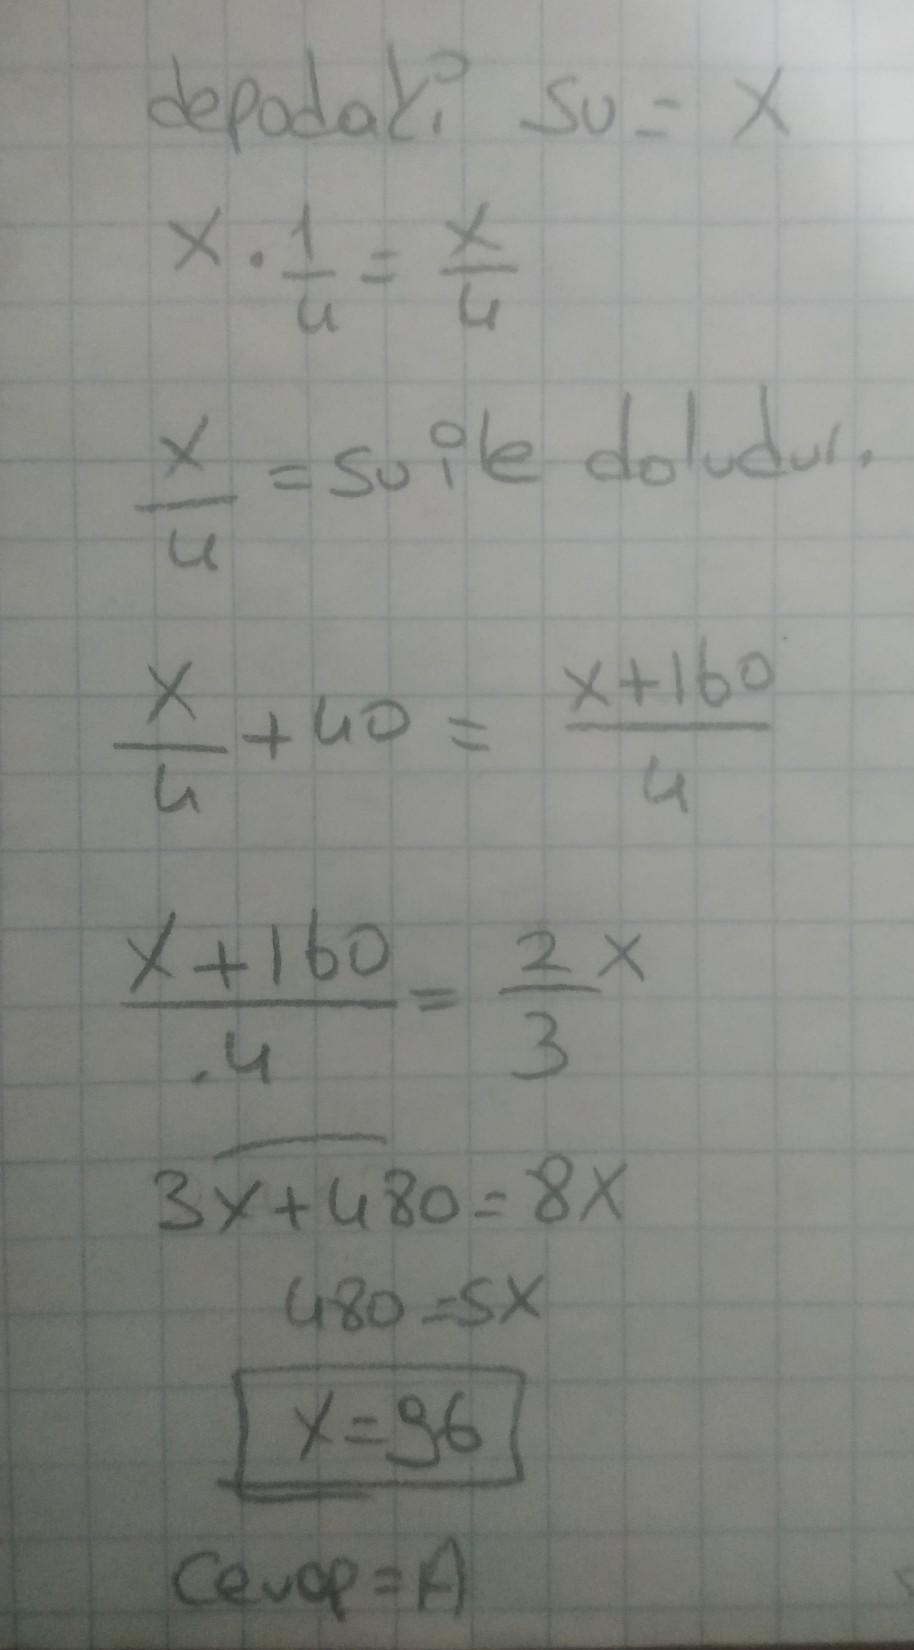 depodaki su = x
x · 1/4 = x/4
x/4 = su ile doludur.
x/4 + 40 = x+160/4
x+160/4 = 2/3 x
3x+480=8x
480=5x
x=96
Cevap=A